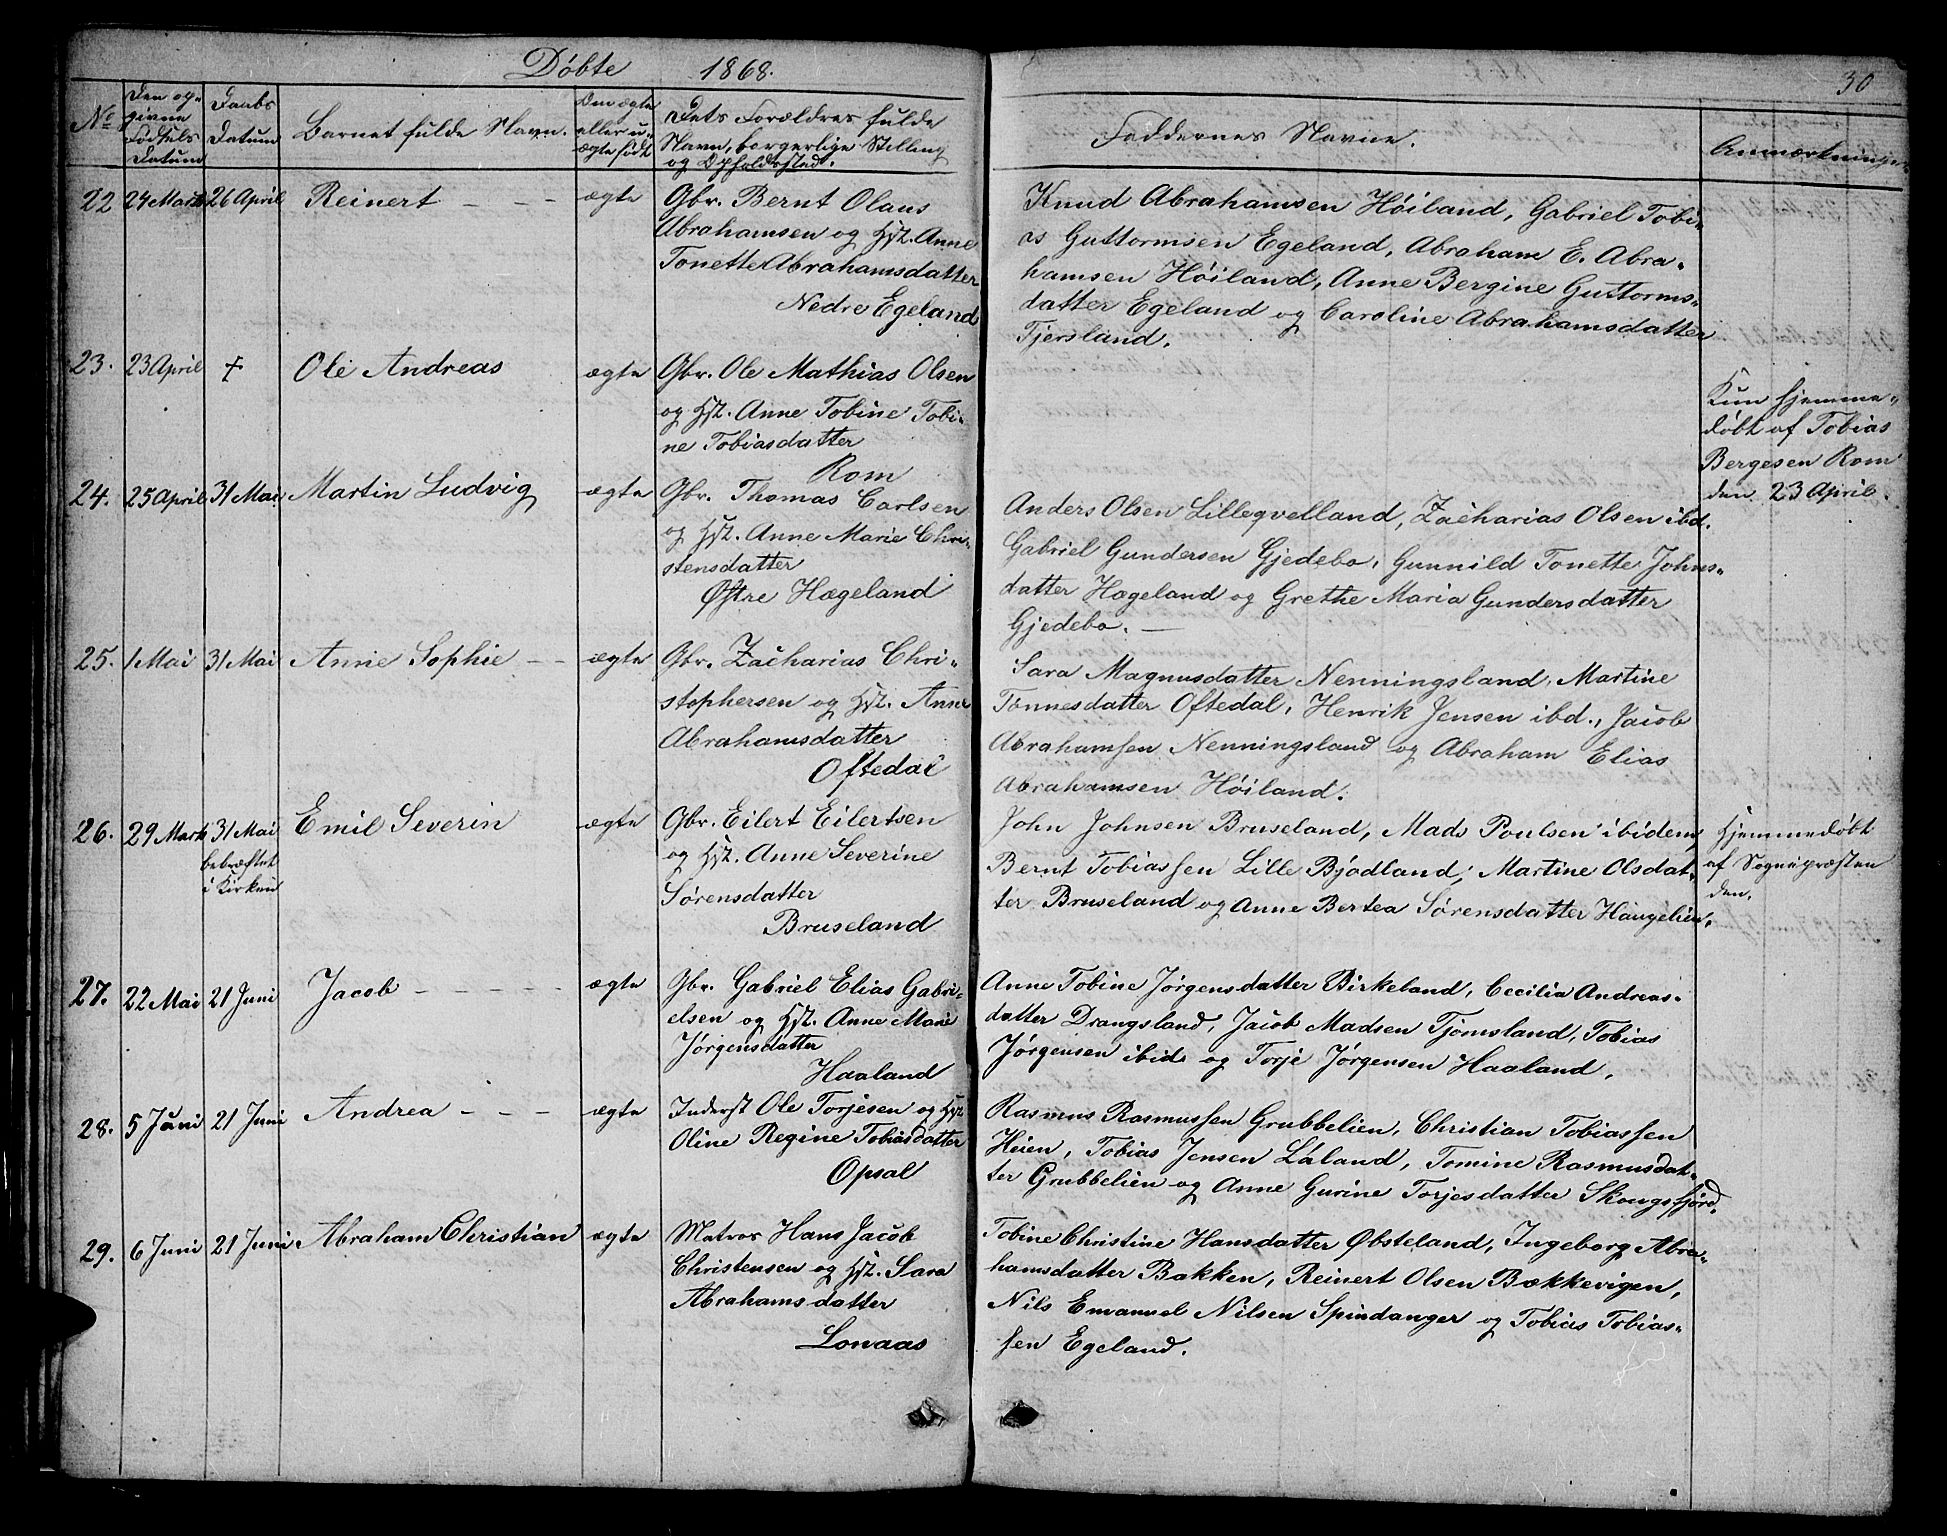 Døbte 1868.
30
No
Den op-
givne
Fødsels
Datum
Daabs
Datum
Barnet fulde Navn.
Om ægte
eller u-
ægte født
Dets Forældres fulde
Navn, borgerlige Stilling
og Opholdssted.
Faddernes Navne.
Anmærkninger
22 24 Marts 26 April Reinert - - - ægte
Gbr. Bernt Olaus
Abrahamsen og Hst. Anne
Tonette Abrahamsdatter
Nedre Egeland
Knud Abrahamsen Höiland, Gabriel Tobi-
as Guttormsen Egeland, Abraham E. Abra-
hamsen Höiland, Anne Bergine Guttorms-
datter Egeland og Caroline Abrahamsdatter
Tjersland.
23. 23 April + Ole Andreas ægte
Gbr. Ole Mathias Olsen
og Hst. Anne Tobine Tobi-
ne Tobiasdatter
Rom
Kun hjemme-
døbt af Tobias
Bergesen Rom
den 23 April.
24. 25 April 31 Mai Martin Ludvig ægte
Gbr. Thomas Carlsen
og Hst. Anne Marie Chri-
stensdatter
Østre Hægeland
Anders Olsen Lilleqvelland, Zacharias Olsen ibd.
Gabriel Gundersen Gjedebo, Gunnild Tonette Johns-
datter Hageland og Grethe Maria Gundersdatter
Gjedebo. —
25. 1 Mai 31 Mai Anne Sophie - - ægte
Gbr. Zacharias Chri-
stophersen og Hst. Anne
Abrahamsdatter
Oftedal
Sara Magnusdatter Nenningsland, Martine
Tönnesdatter Oftedal, Henrik Jensen ibd., Jacob
Abrahamsen Nenningsland og Abraham Elias
Abrahamsen Höiland.
26. 29 Marts 31 Mai
bekræftet
i Kirken
Emil Severin ægte
Gbr. Eilert Eilertsen
og Hst. Anne Severine
Sørensdatter
Bruseland
John Johnsen Bruseland, Mads Poulsen ibidem,
Bernt Tobiassen Lille Bjødland, Martine Olsdat-
ter Bruseland og Anne Bertea Sørensdatter Haugelien.
Hjemmedøbt
af Sognepræsten
den.
27. 22 Mai 21 Juni Jacob - - - - - ægte
Gbr. Gabriel Elias Gabri-
elsen og Hst. Anne Marie
Jørgensdatter
Haaland
Anne Tobine Jørgensdatter Birkeland, Cecilia Andreas-
datter Drangsland, Jacob Madsen Tjomsland, Tobias
Jørgensen ibid. og Torje Jørgensen Haaland,
28. 5 Juni 21 Juni Andrea - - - ægte
Inderst Ole Torjesen og Hst.
Oline Regine Tobiasdatter
Opsal
Rasmus Rasmussen Grubbelien, Christian Tobiassen
Heien, Tobias Jensen Laland, Tomine Rasmusdat-
ter Grubbelien og Anne Gurine Torjesdatter Skougsfjord,
29. 6 Juni 21 Juni. Abraham Christian ægte
Matros Hans Jacob
Christensen og Hst. Sara
Abrahamsdatter
Lonaas
Tobine Christine Hansdatter Øbsteland, Ingeborg Abra-
hamsdatter Bakken, Reinert Olsen Bækkevigen,
Nils Emanuel Nilsen Spindanger og Tobias Tobias-
sen Egeland.